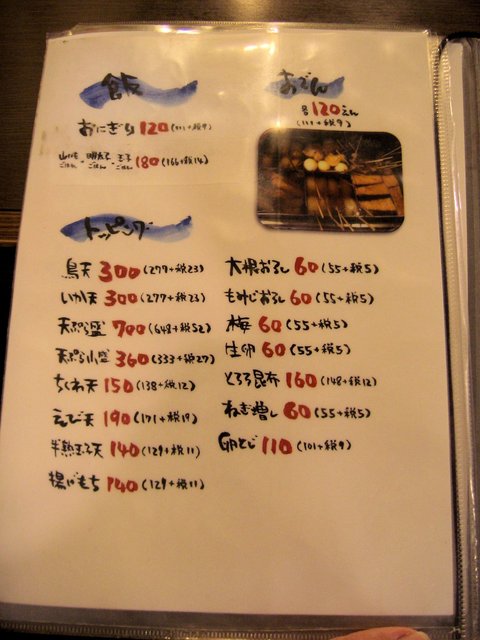 飯
おにぎり 120 (111+税9)
山かけごはん・明太子ごはん・玉子ごはん 180 (166+税14)
おでん
各120えん
(111+税9)
トッピング
鳥天 300 (277+税23)
いか天 300 (277+税23)
天ぷら盛 700 (648+税52)
天ぷら小盛 360 (333+税27)
ちくわ天 150 (138+税12)
えび天 190 (171+税19)
半熟玉子天 140 (129+税11)
揚げもち 140 (129+税11)
大根おろし 60 (55+税5)
もみじおろし 60 (55+税5)
梅 60 (55+税5)
生卵 60 (55+税5)
とろろ昆布 160 (148+税12)
ねぎ増し 60 (55+税5)
卵とじ 110 (101+税9)